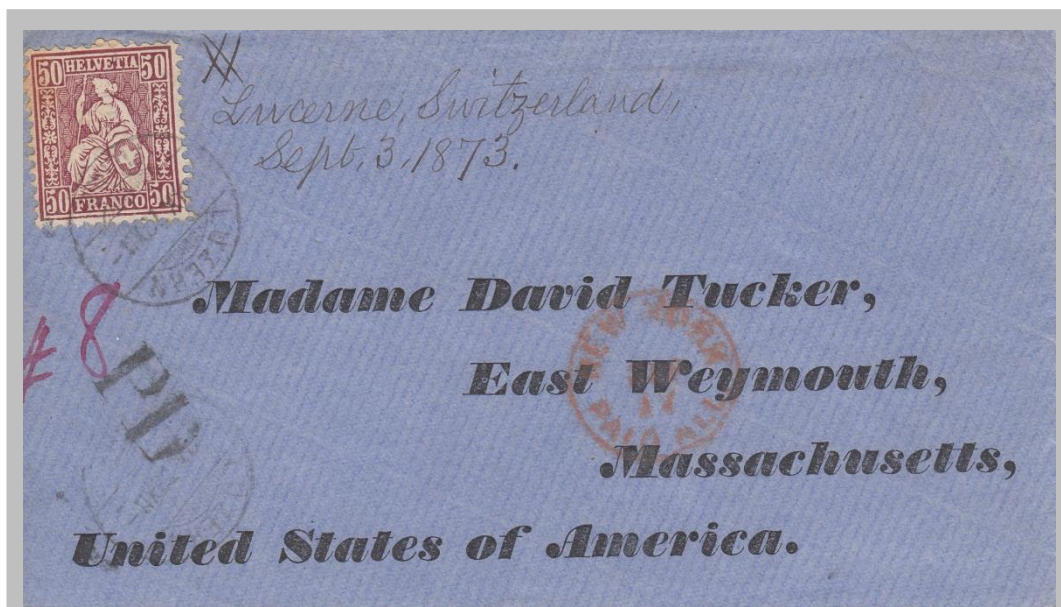 50 HELVETIA 50
50 FRANCO 50
Lucerne, Switzerland,
Sept. 3, 1873.
LUZERN
Madame David Tucker,
NEW YORK
East Weymouth,
PAID ALL
Massachusetts,
# 8
PD
United States of America.